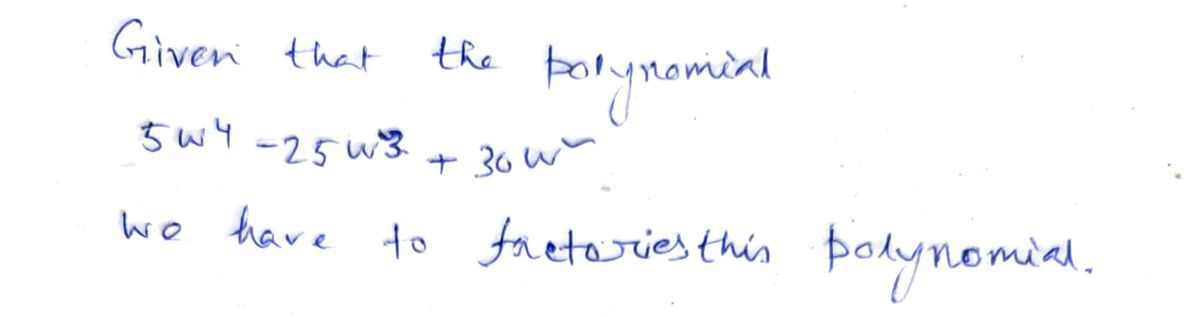 Given that the polynomial
5w⁴ - 25w³ + 30w²
we have to factories this polynomial.